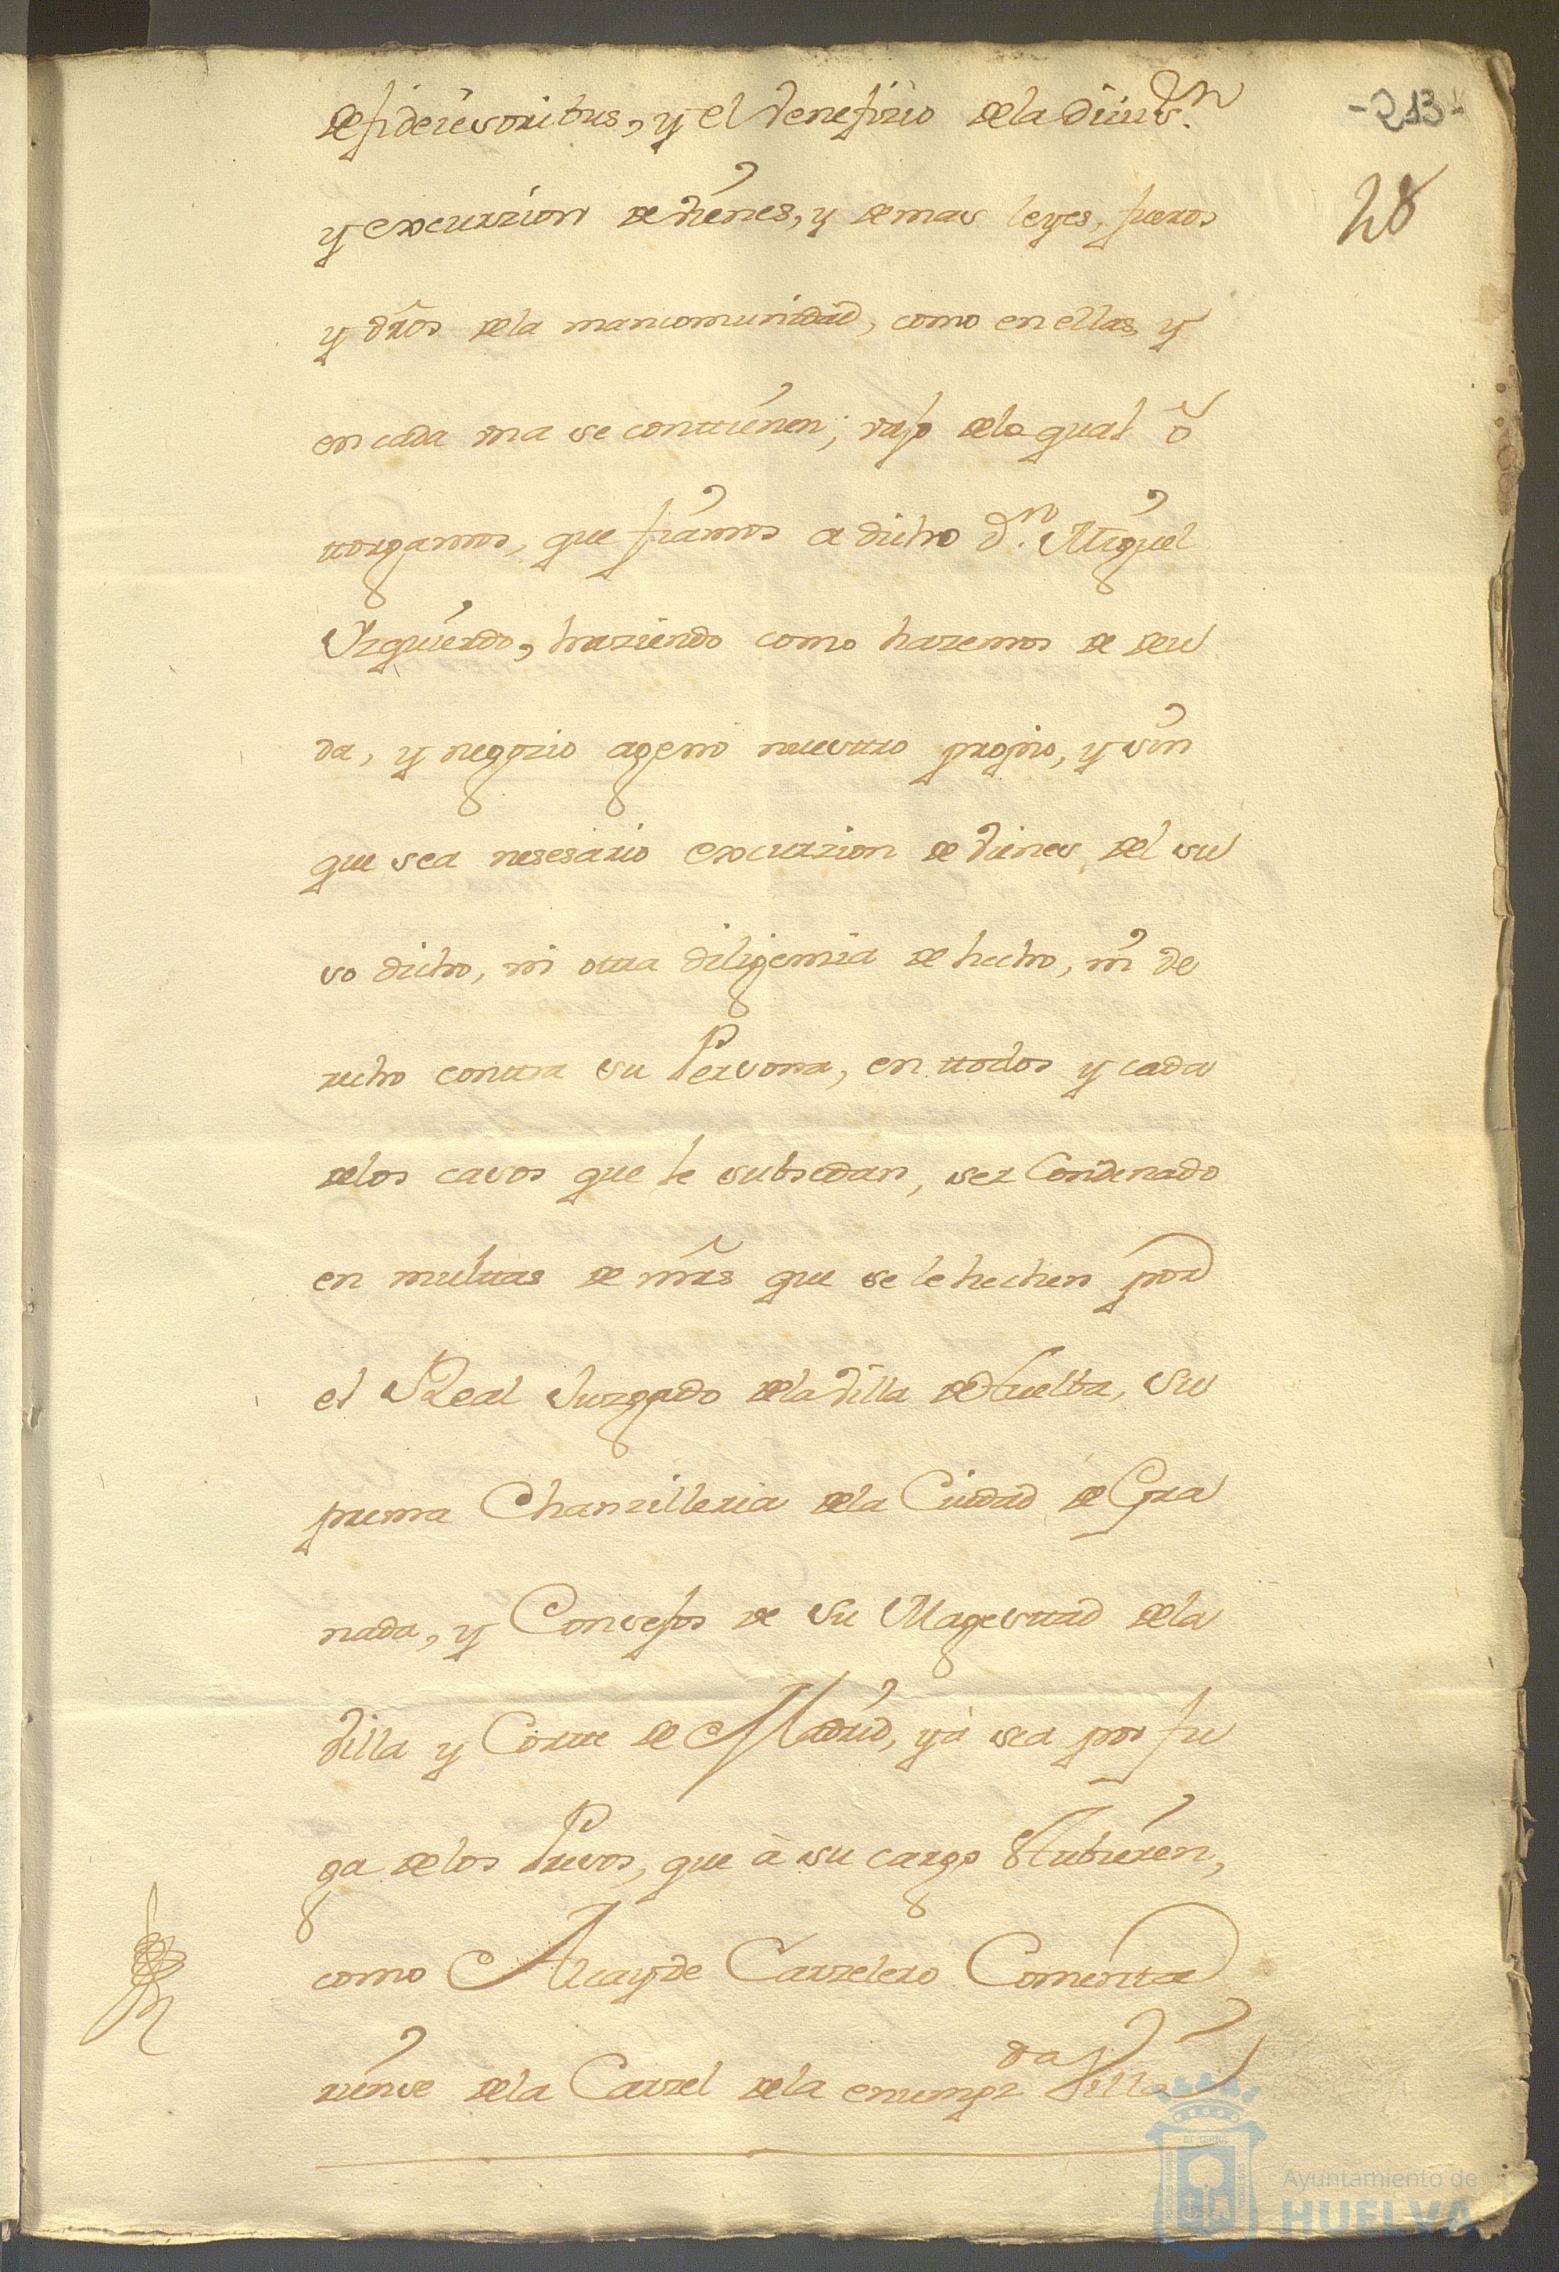 de fideiusoribus, y el venefizio dela Divis.on
-213-
y excurzion de vienes, y demas leyes, fueros
28
y dr̃os dela mancomunidad, como en ellas, y
en cada una se conttienen; vajo dela qual õ
ttorgamos, que fiamos a dicho D.n Miguel
Yzquierdo, haziendo como hazemos de deu
da, y negozio ageno nuesttro propio, y sin
que sea nesesario excurzion de vienes, del su
so dicho, ni otra diligenzia de hecho, ni de
recho conttra su Persona, en ttodos y cada
delos casos que le subsedan, ser Condenado
en multtas de mr̃s que se le hechen por
el Real Juzgado dela Villa de Huelba, Su
prema Chanzilleria dela Ciudad de Gra
nada, y Consejos de Su Magesttad dela
Villa y Cortte de Madrid, yà sea por fu
ga delos Presos, que à su cargo sttubieren,
como Alcayde Carzelero Comentta
riense dela Carzel dela enunpz.da Villa
Ayuntamiento de
HUELVA